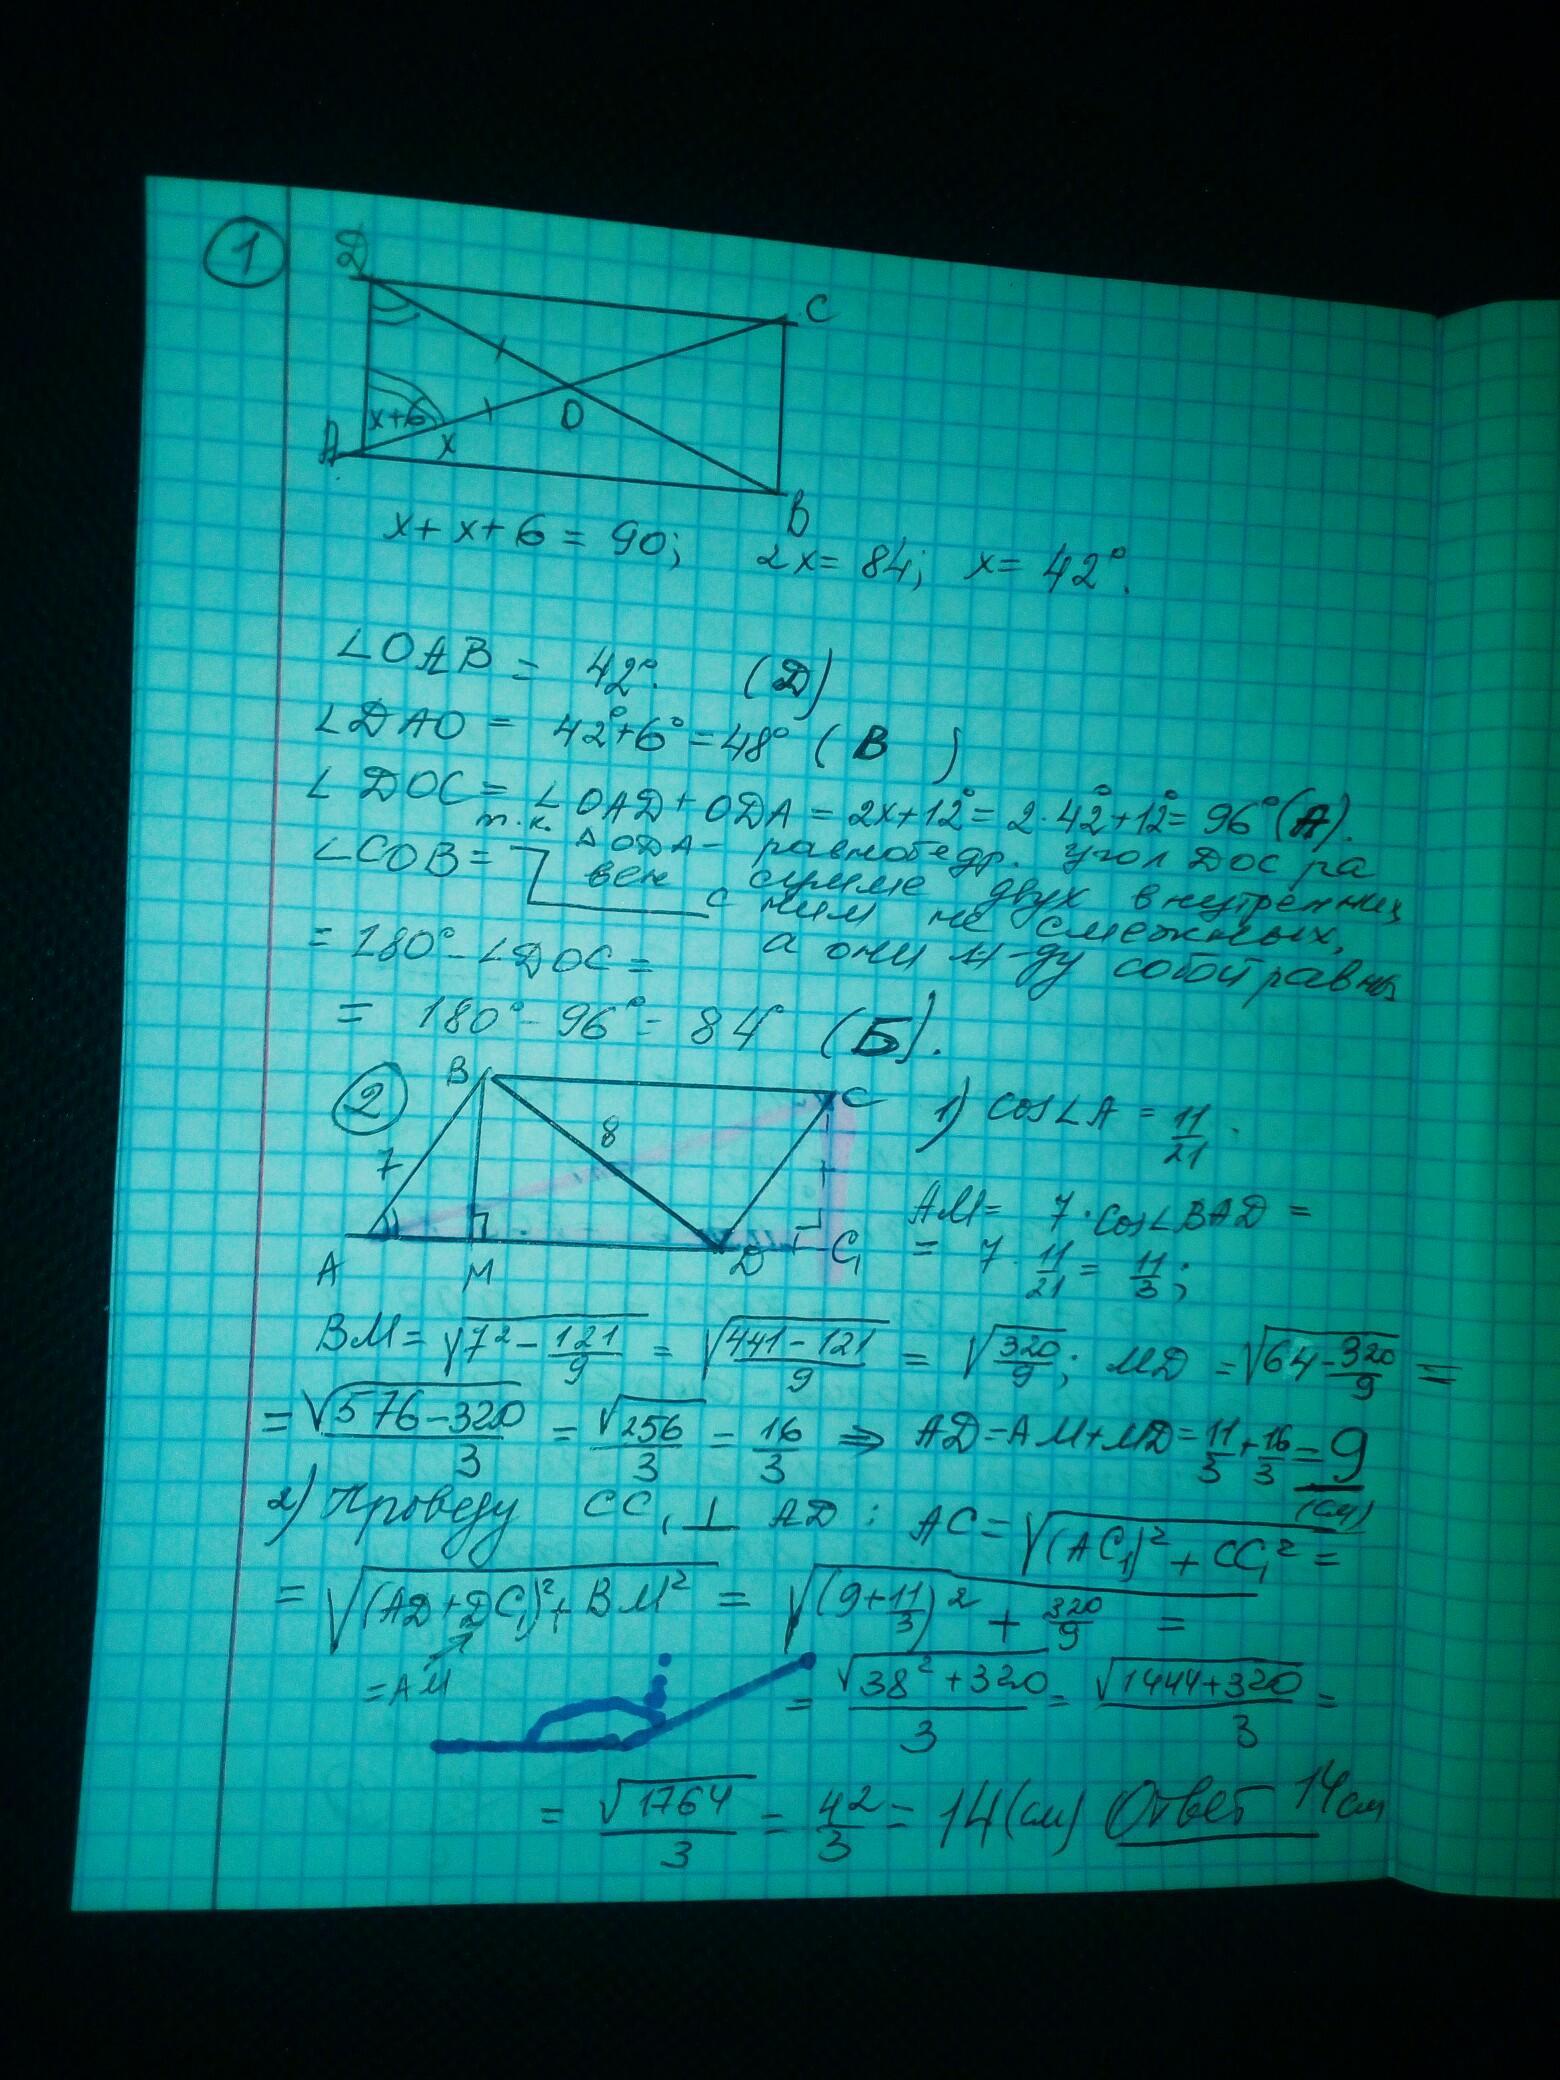 1
D
C
x+6
A
x
O
B
x+x+6=90; 2x=84; x=42°.
∠OAB = 42°. (Д)
∠DAO = 42°+6°=48° (В )
∠DOC= ∠OAD+ODA=2x+12°=2·42°+12°=96°(А).
т.к. ΔODA- равнобедр. угол DOC ра
∠COB= вен сумме двух внутренних
с ним не смежных,
= 180°-∠DOC= а они м-ду собой равны
= 180°-96°=84° (Б).
2
B
C
8
7
A
M
D
C₁
1) cos∠A = 11/21.
AM= 7·cos∠BAD =
= 7·11/21= 11/3;
BM=√(7²-121/9) = √((441-121)/9) = √(320/9); MD =√(64-320/9) =
= √(576-320)/3 = √256/3 = 16/3 ⇒ AD=AM+MD=11/3+16/3=9
(см)
2) Проведу CC₁⊥AD: AC=√((AC₁)²+CC₁²) =
= √((AD+DC₁)²+BM²) = √((9+11/3)²+320/9) =
=AM
= √(38²+320)/3 = √(1444+320)/3 =
= √1764/3 = 42/3 = 14(см) Ответ 14см